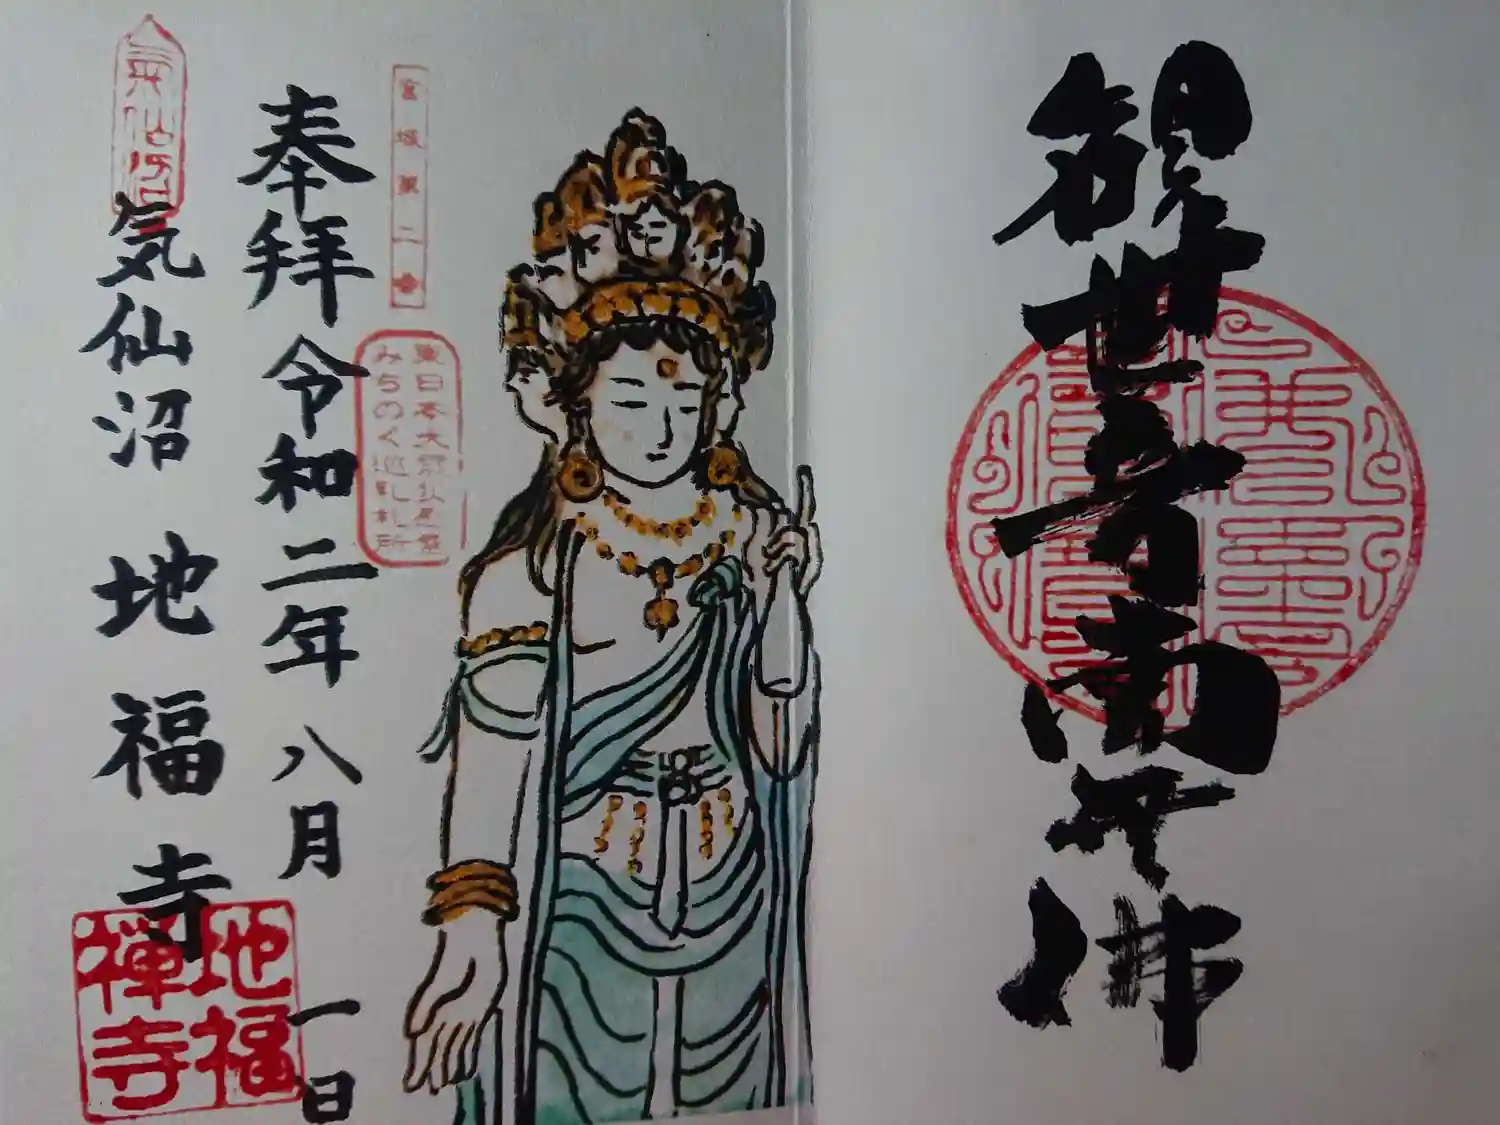 観世音南無佛
宮城第二番
東日本大
みちのく巡礼札所
奉拝 令和二年 八月 一日
氣仙沼
気仙沼 地福寺
地福
禪寺